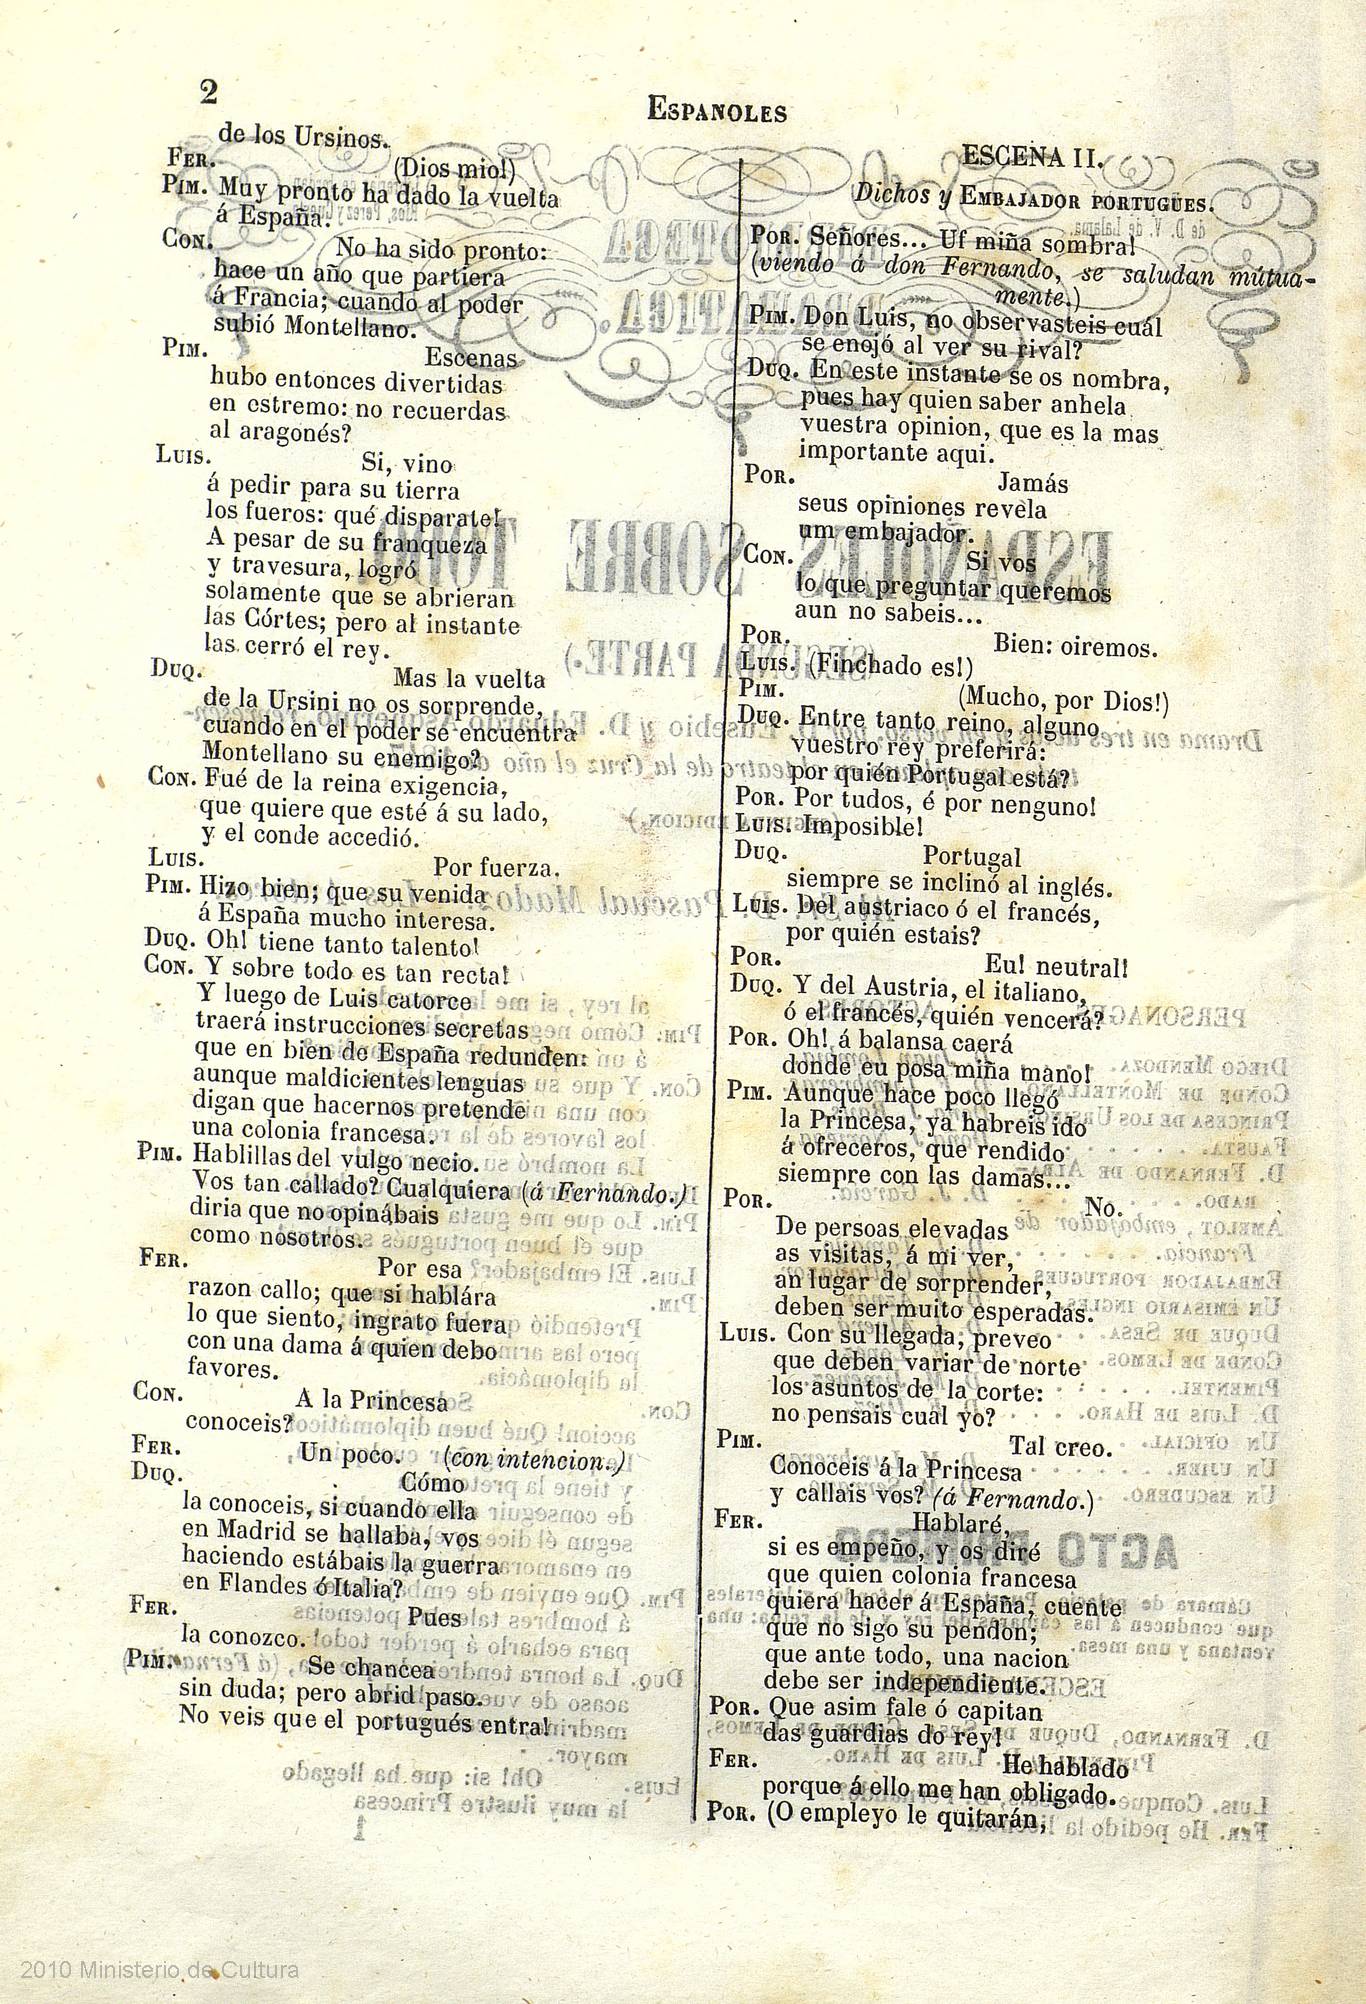 2
ESPAÑOLES
de los Ursinos.
FER. (Dios mio!)
PIM. Muy pronto ha dado la vuelta
á España.
CON. No ha sido pronto:
hace un año que partiera
á Francia; cuando al poder
subió Montellano.
PIM. Escenas
hubo entonces divertidas
en estremo: no recuerdas
al aragonés?
LUIS. Si, vino
á pedir para su tierra
los fueros: qué disparate!
A pesar de su franqueza
y travesura, logró
solamente que se abrieran
las Córtes; pero al instante
las cerró el rey.
DUQ. Mas la vuelta
de la Ursini no os sorprende,
cuando en el poder se encuentra
Montellano su enemigo?
CON. Fué de la reina exigencia,
que quiere que esté á su lado,
y el conde accedió.
LUIS. Por fuerza.
PIM. Hizo bien; que su venida
á España mucho interesa.
DUQ. Oh! tiene tanto talento!
CON. Y sobre todo es tan recta!
Y luego de Luis catorce
traerá instrucciones secretas
que en bien de España redunden:
aunque maldicientes lenguas
digan que hacernos pretende
una colonia francesa.
PIM. Hablillas del vulgo necio.
Vos tan callado? Cualquiera (á Fernando.)
diria que no opinábais
como nosotros.
FER. Por esa
razon callo; que si hablára
lo que siento, ingrato fuera
con una dama á quien debo
favores.
CON. A la Princesa
conoceis?
FER. Un poco. (con intencion.)
DUQ. Cómo
la conoceis, si cuando ella
en Madrid se hallaba, vos
haciendo estábais la guerra
en Flandes ó Italia?
FER. Pues
la conozco.
PIM. Se chancea
sin duda; pero abrid paso.
No veis que el portugués entra!
ESCENA II.
Dichos y EMBAJADOR PORTUGUES.
POR. Señores... Uf miña sombra!
(viendo á don Fernando, se saludan mútua-
mente.)
PIM. Don Luis, no observasteis cuál
se enojó al ver su rival?
DUQ. En este instante se os nombra,
pues hay quien saber anhela
vuestra opinion, que es la mas
importante aqui.
POR. Jamás
seus opiniones revela
um embajador.
CON. Si vos
lo que preguntar queremos
aun no sabeis...
POR. Bien: oiremos.
LUIS. (Finchado es!)
PIM. (Mucho, por Dios!)
DUQ. Entre tanto reino, alguno
vuestro rey preferirá:
por quién Portugal está?
POR. Por tudos, é por nenguno!
LUIS. Imposible!
DUQ. Portugal
siempre se inclinó al inglés.
LUIS. Del austriaco ó el francés,
por quién estais?
POR. Eu! neutral!
DUQ. Y del Austria, el italiano,
ó el francés, quién vencerá?
POR. Oh! á balansa caerá
donde eu posa miña mano!
PIM. Aunque hace poco llegó
la Princesa, ya habreis ido
á ofreceros, que rendido
siempre con las damas...
POR. No.
De persoas elevadas
as visitas, á mi ver,
an lugar de sorprender,
deben ser muito esperadas.
LUIS. Con su llegada, preveo
que deben variar de norte
los asuntos de la corte:
no pensais cual yo?
PIM. Tal creo.
Conoceis á la Princesa
y callais vos? (á Fernando.)
FER. Hablaré,
si es empeño, y os diré
que quien colonia francesa
quiera hacer á España, cuente
que no sigo su pendon;
que ante todo, una nacion
debe ser independiente.
POR. Que asim fale ó capitan
das guardias do rey!
FER. He hablado
porque á ello me han obligado.
POR. (O empleyo le quitarán,
2010 Ministerio de Cultura